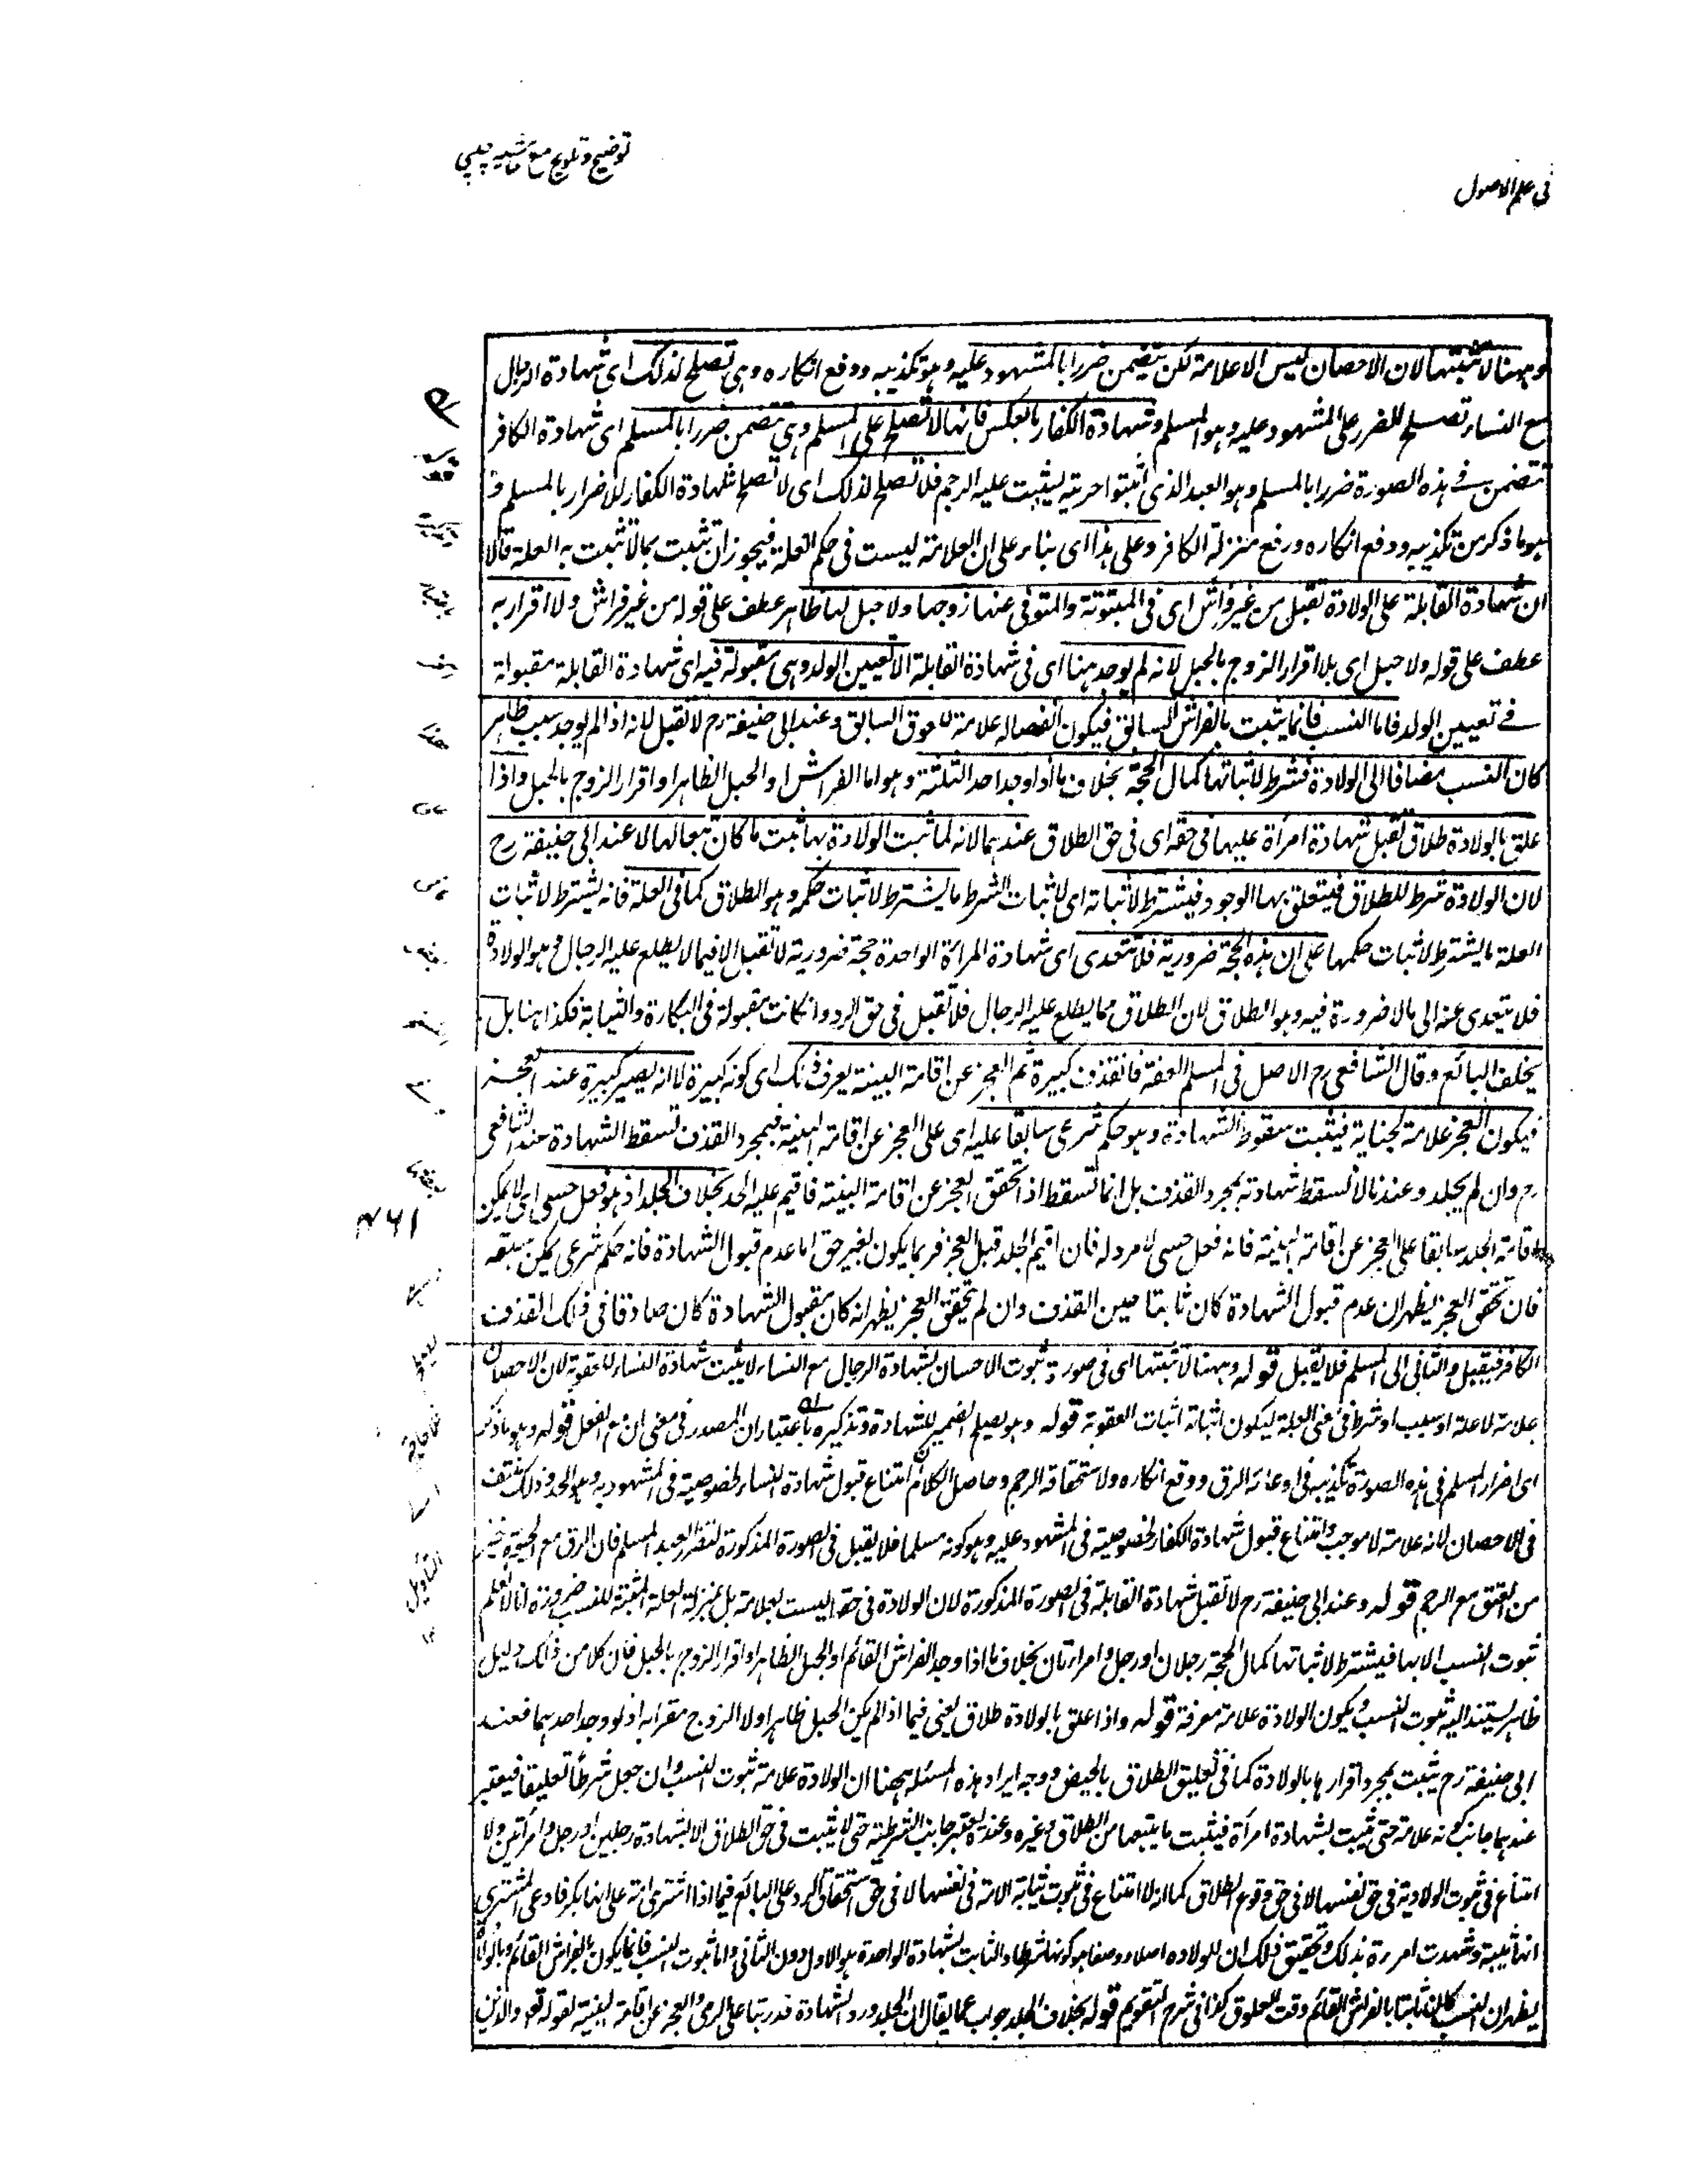 توضيح وتلويح مع حاشيه چلپي
في علم الاصول
وههنا لا تثبتها لان الاحصان ليس الا علامة لكن يتضمن ضررا بالمشهود عليه وهو تكذيبه ودفع انكاره وهي تصلح لذلك اي شهادة الرجال
مع النساء تصلح للضرر على المشهود عليه وهو المسلم وشهادة الكفار بالعكس فانها لا تصلح على المسلم وهي تتضمن ضررا بالمسلم اي شهادة الكافر
تتضمن في هذه الصورة ضررا بالمسلم وهو العبد الذي اثبتوا حريته ليثبت عليه الرجم فلا تصلح لذلك اي لا تصلح شهادة الكفار للاضرار بالمسلم و
هو ما ذكر من تكذيبه ودفع انكاره ورفع منزلة الكافر وعلى هذا اي بناء على ان العلامة ليست في حكم العلة فيجوز ان تثبت بما لا تثبت به العلة قالا
ان شهادة القابلة على الولادة تقبل من غير فراش اي في المبتوتة والمتوفى عنها زوجها ولا حبل لها ظاهر عطف على قوله من غير فراش ولا اقرار به
عطف على قوله ولا حبل اي بلا اقرار الزوج بالحبل لانه لم يوجد هنا اي في شهادة القابلة الا تعيين الولد وهي مقبولة فيه اي شهادة القابلة مقبولة
في تعيين الولد فاما النسب فانما يثبت بالفراش السابق فيكون انفصاله علامة للعلوق السابق وعند ابي حنيفة رح لا تقبل لانه اذا لم يوجد سبب ظاهر
كان النسب مضافا الى الولادة فشرط لاثباتها كمال الحجة بخلاف ما اذا وجد احد الثلثة وهو اما الفراش او الحبل الظاهر او اقرار الزوج بالحبل واذا
علق بالولادة طلاق تقبل شهادة امرأة عليها في حقه اي في حق الطلاق عندهما لانه لما ثبت الولادة بها ثبت ما كان تبعا لها لا عند ابي حنيفة رح
لان الولادة شرط للطلاق فيتعلق بها الوجود فيشترط لاثباته اي لاثبات الشرط ما يشترط لاثبات حكمه وهو الطلاق كما في العلة فانه يشترط لاثبات
العلة ما يشترط لاثبات حكمها على ان هذه الحجة ضرورية فلا تتعدى اي شهادة المرأة الواحدة حجة ضرورية لا تقبل الا فيما لا يطلع عليه الرجال وهو الولادة
فلا يتعدى عنه الى ما لا ضرورة فيه وهو الطلاق لان الطلاق مما يطلع عليه الرجال فلا تقبل في حق الرد وان كانت مقبولة في البكارة والثيابة فكذا هنا بل
يحلف البائع وقال الشافعي رح الاصل في المسلم العفة فالقذف كبيرة ثم العجز عن اقامة البينة يعرف ذلك اي كونه كبيرة لا انه يصير كبيرة عند العجز
فيكون العجز علامة لجناية فيثبت سقوط الشهادة وهو حكم شرعي سابقا عليه اي على العجز عن اقامة البينة فبمجرد القذف تسقط الشهادة عند الشافعي
رح وان لم يجلد وعندنا لا تسقط شهادته بمجرد القذف بل انما تسقط اذا تحقق العجز عن اقامة البينة فاقيم عليه الحد بخلاف الجلد اذ هو فعل حسي اي لا يمكن
اقامة الجلد سابقا على العجز عن اقامة البينة فانه فعل حسي لا مرد له فان اقيم الجلد قبل العجز فربما يكون لغير حق اما عدم قبول الشهادة فانه حكم شرعي يمكن سبقه
فان تحقق العجز يظهر ان عدم قبول الشهادة كان ثابتا حين القذف وان لم يتحقق العجز يظهر انه كان مقبول الشهادة كان صادقا في ذلك القذف
الكافر فيقبل والثاني الى المسلم فلا يقبل قوله وههنا لا تثبتها اي في صورة ثبوت الاحسان بشهادة الرجال مع النساء لا يثبت شهادة النساء العقوبة لان الاحصان
علامة لا علة او سبب او شرط في معنى العلة ليكون اثباته اثبات العقوبة قوله وهو يصلح الضمير للشهادة وتذكيره باعتبار ان المصدر في معنى ان مع الفعل قوله وهو ما ذكر
اي اضرار المسلم في هذه الصورة تكذيبه في ادعائه الرق ودفع انكاره ولاستحقاقه الرجم وحاصل الكلام ان امتناع قبول شهادة النساء لخصوصية في المشهود به وهو الحد وذلك منتف
في الاحصان لانه علامة لا موجب وامتناع قبول شهادة الكفار لخصوصية في المشهود عليه وهو كونه مسلما فلا يقبل في الصورة المذكورة لتضرر العبد المسلم فان الرق مع الحيوة خير
من العتق مع الرجم قوله وعند ابي حنيفة رح لا تقبل شهادة القابلة في الصورة المذكورة لان الولادة في حقنا ليست بعلامة بل بمنزلة العلة المثبتة للنسب ضرورة انا لا نعلم
ثبوت النسب الا بها فيشترط لاثباتها كمال الحجة رجلان او رجل وامرأتان بخلاف ما اذا وجد الفراش القائم او الحبل الظاهر او اقرار الزوج بالحبل فان كلا من ذلك دليل
ظاهر يستند اليه ثبوت النسب ويكون الولادة علامة معرفة قوله واذا علق بالولادة طلاق يعني فيما اذا لم يكن الحبل ظاهرا ولا الزوج مقرا به اذ لو وجد احدهما فعند
ابي حنيفة رح يثبت بمجرد اقرارها بالولادة كما في تعليق الطلاق بالحيض ووجه ايراد هذه المسئلة ههنا ان الولادة علامة ثبوت النسب وان جعل شرطا تعليقا فيعتبر
عندهما جانب كونه علامة حتى يثبت بشهادة امرأة فيثبت ما يتبعها من الطلاق وغيره وعنده يعتبر جانب الشرطية حتى لا يثبت في حق الطلاق الا بشهادة رجلين او رجل وامرأتين ولا
امتناع في ثبوت الولادة في حق نفسها لا في حق وقوع الطلاق كما انه لا امتناع في ثبوت ثيابة الامة في نفسها لا في حق استحقاق الرد على البائع فيما اذا اشترى امة على انها بكر فادعى المشتري
انها ثيبة وشهدت امرأة بذلك وتحقيق ذلك ان للولادة اصلا ووصفا هو كونها شرطا والثابت بشهادة الواحدة هو الاول دون الثاني واما ثبوت النسب فانما يكون بالفراش القائم وبالولادة
يظهر ان النسب كان ثابتا بالفراش القائم وقت العلوق كذا في شرح التقويم قوله بخلاف الجلد جواب عما يقال ان الجلد ورد الشهادة قد رتبا على الرمي والعجز عن اقامة البينة لقوله تعو والذين